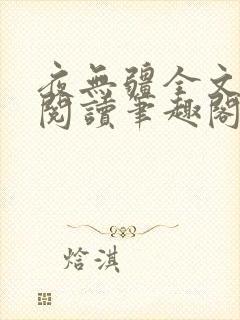 夜無疆全文
閱讀筆趣閣
焓淇